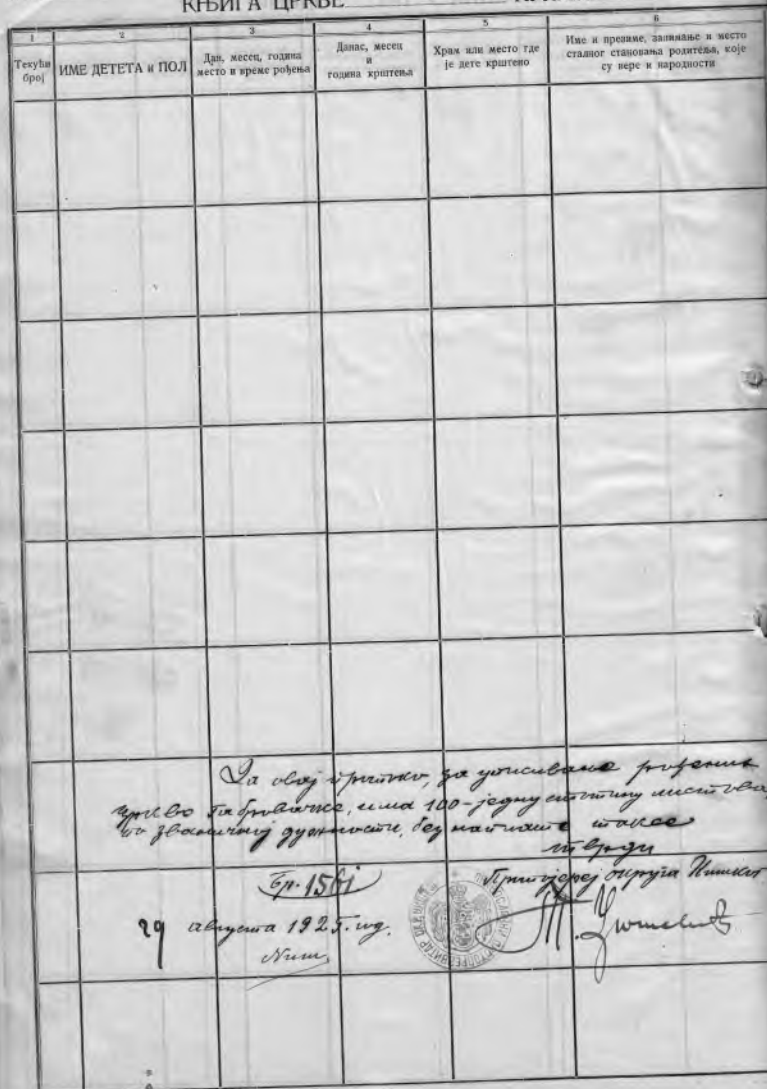 КЊИГА ЦРКВЕ
1 2 3 4 5 6
Текући број
ИМЕ ДЕТЕТА и ПОЛ
Дан, месец, година
место и време рођења
Данас, месец
и
година крштења
Храм или место где
је дете крштено
Име и презиме, занимање и место
сталног становања родитеља, које
су вере и народности
Да овај, за уписивање рођених
цркве Габровачке, има 100-једну стотину листова,
по званичној дужности, без наплате таксе
тврди
Бр. 1561
Протојереј округа Нишког
29 августа 1925. год.
Ниш